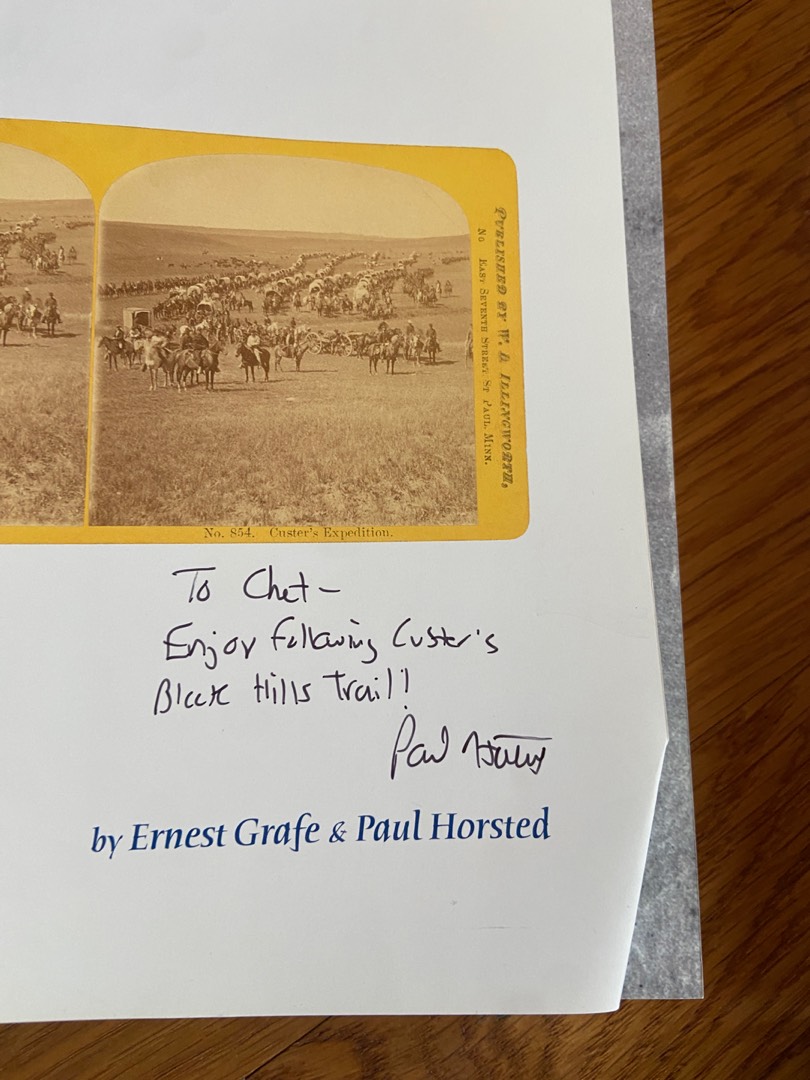 PUBLISHED BY W. H. ILLINGWORTH,
No EAST SEVENTH STREET, ST PAUL, MINN.
No. 854. Custer's Expedition.
To Chet-
Enjoy following Custer's
Black Hills Trail!
Paul Horsted
by Ernest Grafe & Paul Horsted